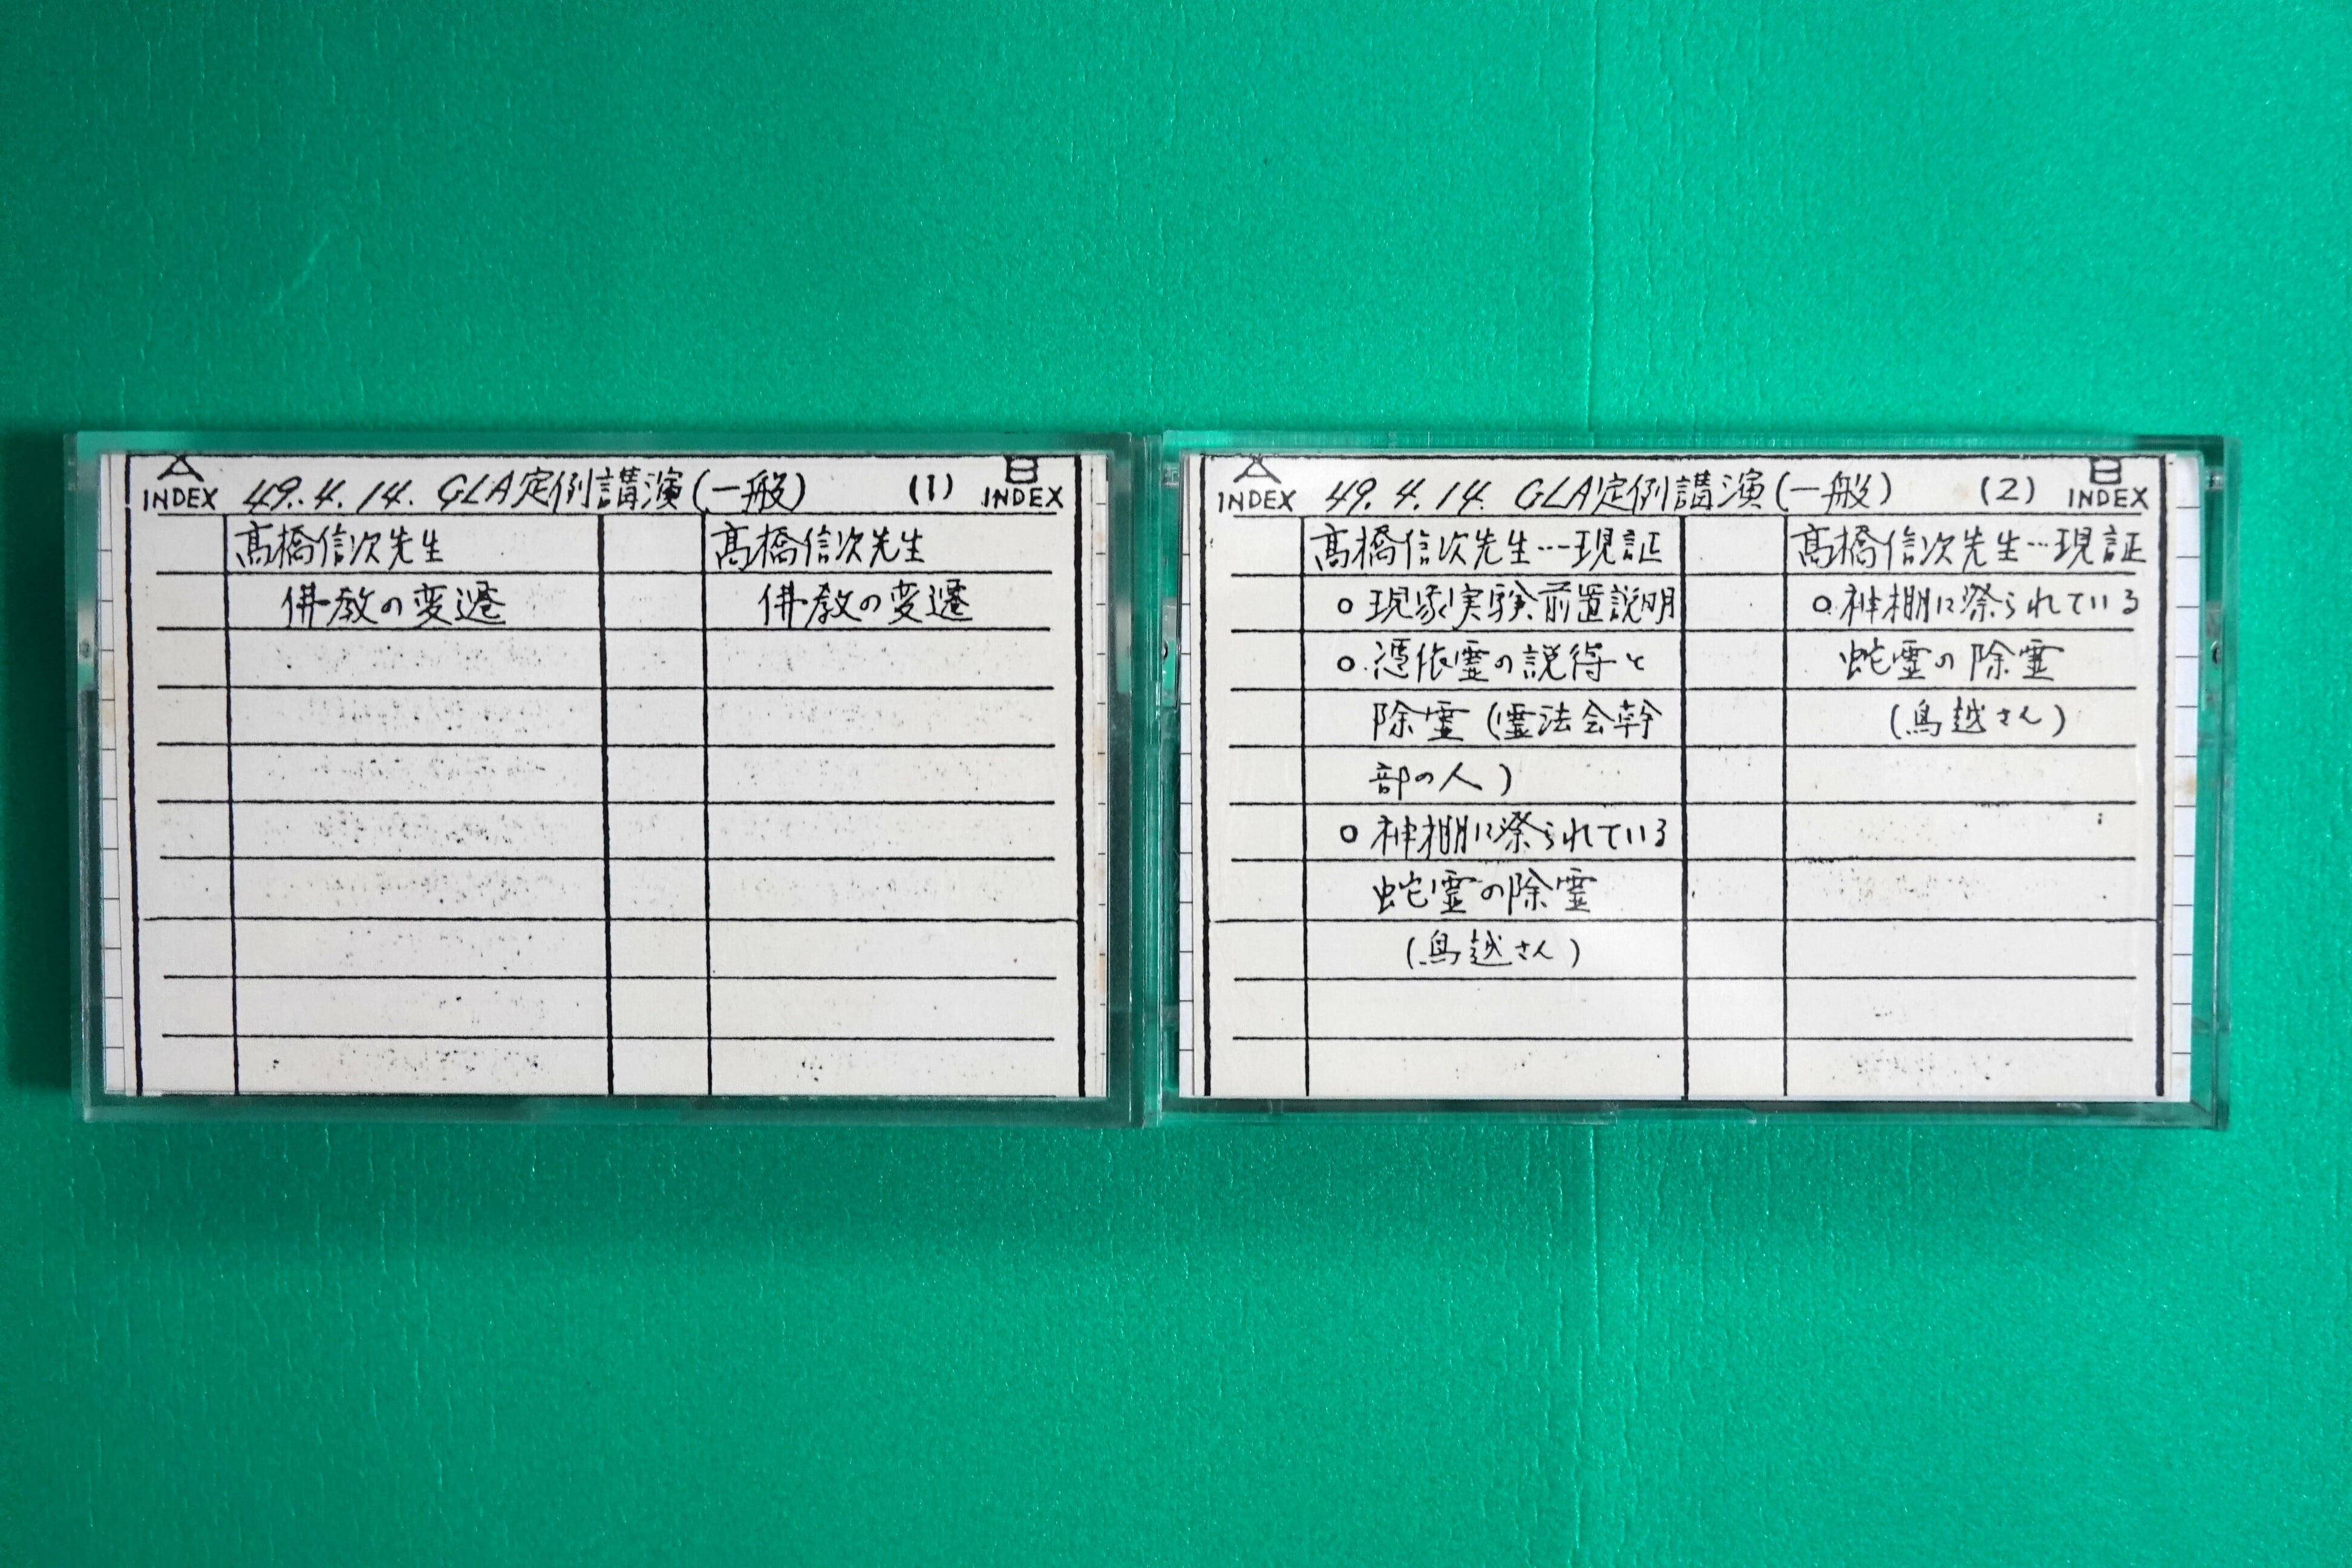 A
INDEX
49.4.14. GLA定例講演(一般) (1)
B
INDEX
髙橋信次先生
佛教の変遷
髙橋信次先生
佛教の変遷
A
INDEX
49.4.14. GLA定例講演(一般) (2)
B
INDEX
髙橋信次先生…現証
○現象実験前置説明
○憑依霊の説得と
除霊(霊法会幹
部の人)
○神棚に祭られている
蛇霊の除霊
(鳥越さん)
髙橋信次先生…現証
○神棚に祭られている
蛇霊の除霊
(鳥越さん)